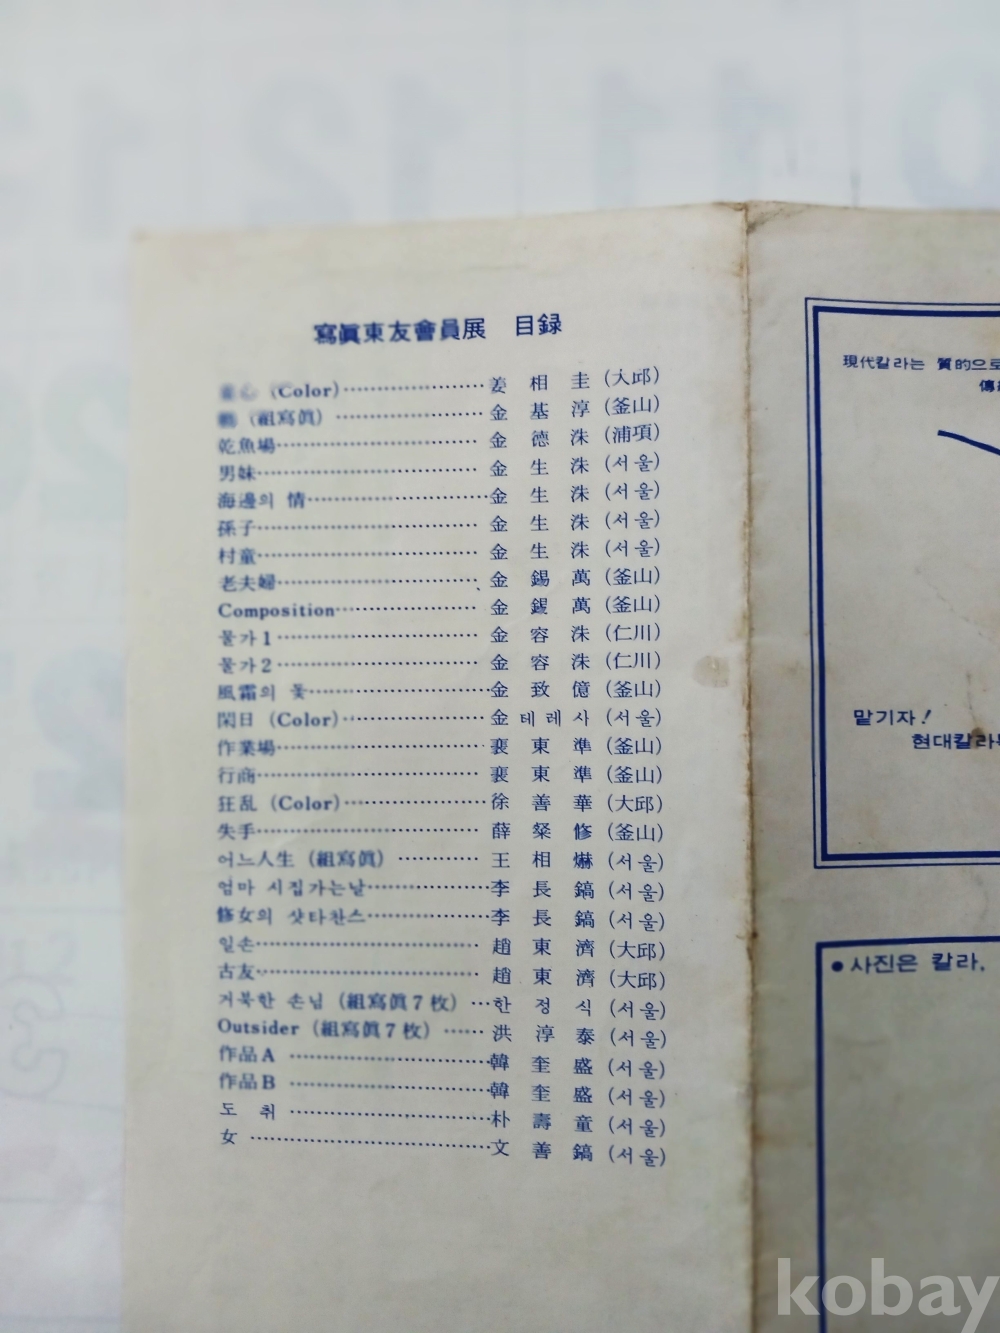 寫眞東友會員展 目録
心 (Color) 姜相圭 (大邱)
(組寫眞) 金基淳 (釜山)
乾魚場 金德洙 (浦項)
男妹 金生洙 (서울)
海邊의 情 金生洙 (서울)
孫子 金生洙 (서울)
村童 金生洙 (서울)
老夫婦 金錫萬 (釜山)
Composition 金錫萬 (釜山)
물가 1 金容洙 (仁川)
물가 2 金容洙 (仁川)
風霜의 꽃 金致億 (釜山)
閑日 (Color) 金테레사 (서울)
作業場 裵東準 (釜山)
行商 裵東準 (釜山)
狂乱 (Color) 徐善華 (大邱)
失手 薛粲修 (釜山)
어느人生 (組寫眞) 王相爀 (서울)
엄마 시집가는날 李長鎬 (서울)
修女의 샷타찬스 李長鎬 (서울)
일손 趙東濟 (大邱)
古友 趙東濟 (大邱)
거북한 손님 (組寫眞7枚) 한정식 (서울)
Outsider (組寫眞7枚) 洪淳泰 (서울)
作品A 韓奎盛 (서울)
作品B 韓奎盛 (서울)
도취 朴壽童 (서울)
女 文善鎬 (서울)
現代칼라는 質的으로
傳
맡기자!
현대칼라
●사진은 칼라,
kobay